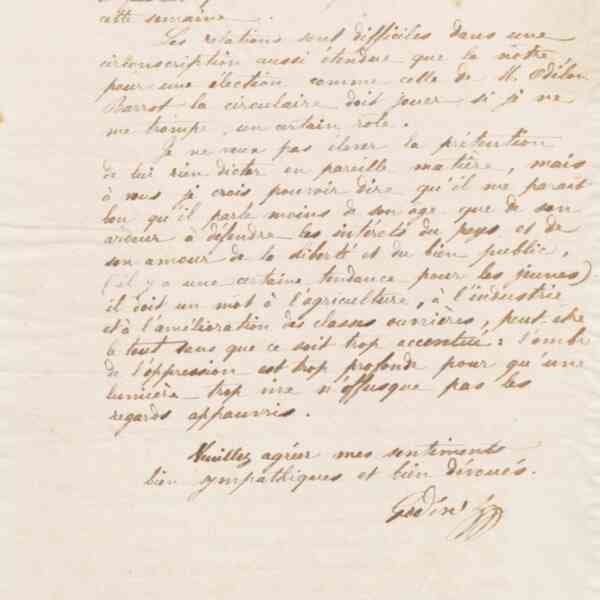 cette semaine.
Les relations sont difficiles dans une
circonscription aussi étendue que la notre
pour une élection comme celle de M. Odilon
Barrot la circulaire doit jouer si je ne
me trompe un certain role.
Je ne veux pas élever la prétention
de lui rien dicter en pareille matière, mais
à vous je crois pouvoir dire qu'il me parait
bon qu'il parle moins de son age que de son
ardeur à défendre les interets du pays et de
son amour de la liberté et du bien public,
(il y a une certaine tendance pour les jeunes)
il doit un mot à l'agriculture, à l'industrie
et à l'amélioration des classes ouvrières, peut être
le tout sans que ce soit trop accentué : l'ombre
de l'oppression est trop profonde pour qu'une
lumière trop vive n'offusque pas les
regards appauvris.
Veuillez agréer mes sentiments
bien sympathiques et bien dévoués.
Godin